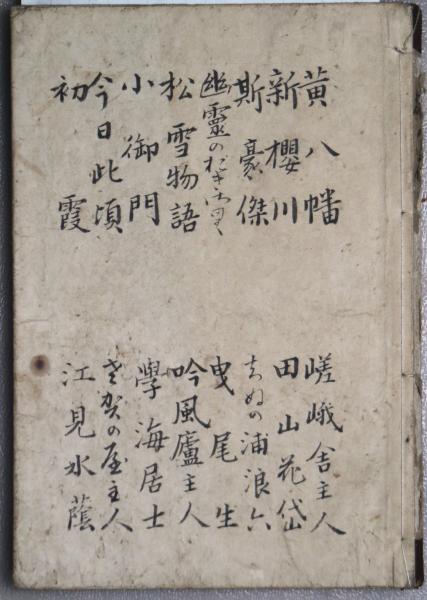 黄八幡
新櫻川
斯豪傑
幽靈の
松雪物語
小御門
今日此頃
初霞
嵯峨舎主人
田山花岱
ちぬの浦浪六
曳尾生
吟風廬主人
學海居士
さ賀の屋主人
江見水蔭